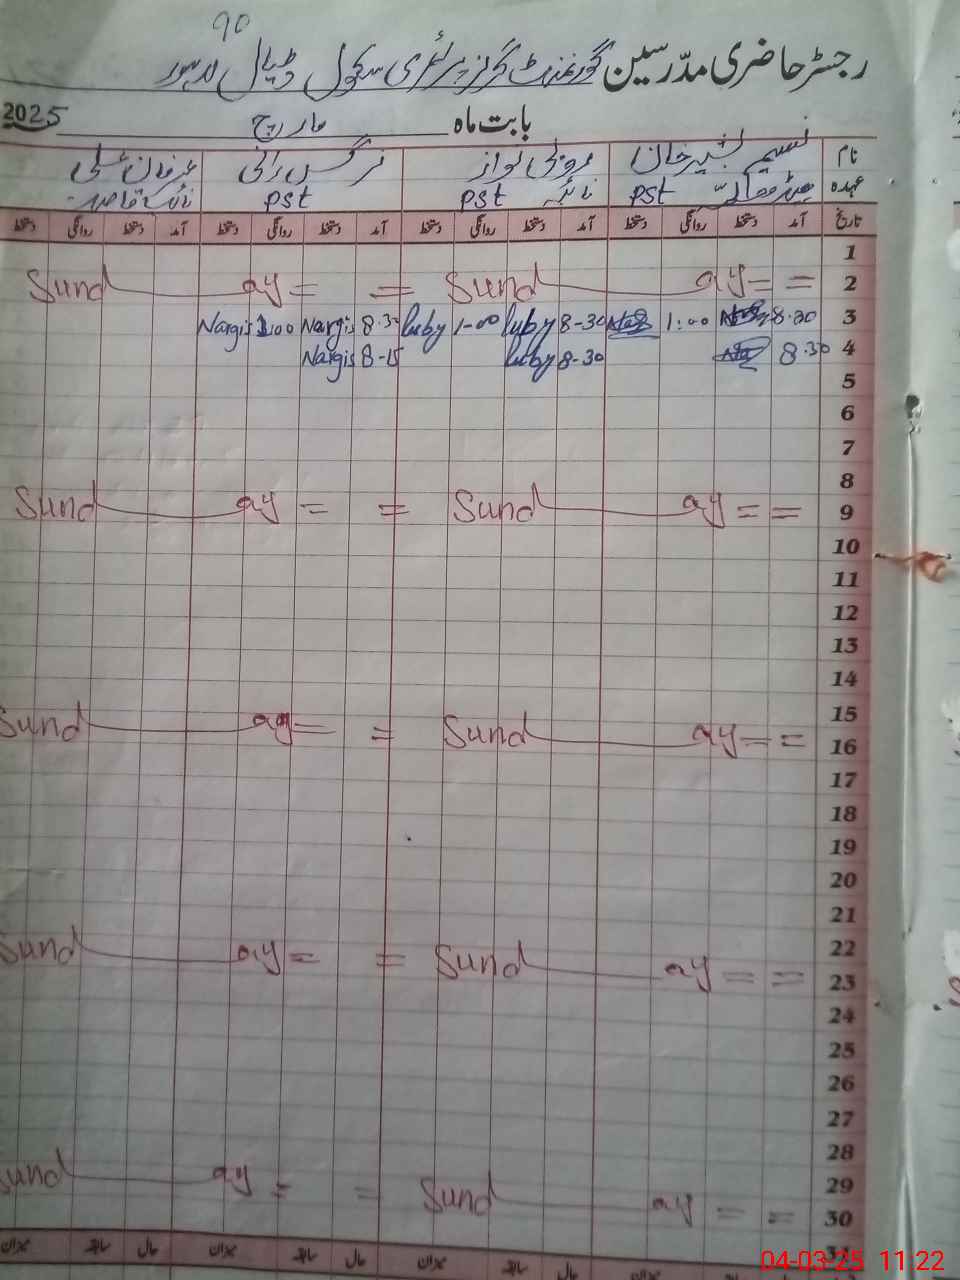 90
رجسٹر حاضری مدرّسین گورنمنٹ گرلز پرائمری سکول
بابت ماہ مارچ 2025
نام نسیم بشیر خان روبی نواز نرگس رانی عرفان علی
عہدہ PST PST PST نائب قاصد
تاریخ آمد دستخط روانگی دستخط آمد دستخط روانگی دستخط آمد دستخط روانگی دستخط آمد دستخط روانگی دستخط
1
2 Sund ay = = Sund ay = =
3 8.20 1:00 8-30 Ruby 1-00 Ruby 8.30 Nargis 1.00 Nargis
4 8.30 8-30 Ruby 8-15 Nargis
5
6
7
8
9 Sund ay = = Sund ay = =
10
11
12
13
14
15
16 Sund ay = = Sund ay = =
17
18
19
20
21
22
23 Sund ay = = Sund ay = =
24
25
26
27
28
29
30 Sund ay = = Sund ay = =
31
حال سابقہ میزان حال سابقہ میزان حال سابقہ میزان
04-03-25 11:22